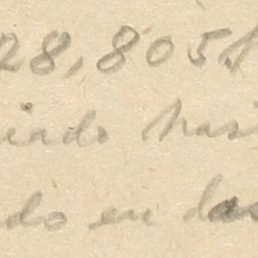 28,805.
iado has
do en las